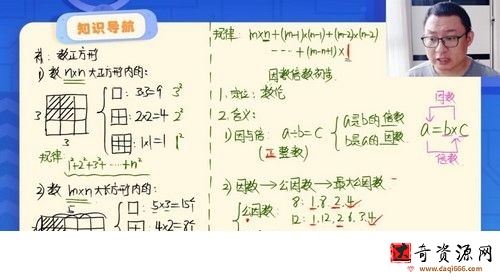 知识导航
前: 数正方形
1) 数 n×n 大正方形内的:
3
3
3×3=9 3²
2×2=4 2²
1×1=1 1²
规律 1²+2²+3²+……+n²
2) 数 m×n 大长方形内的:
5
5×3=15个
4×2=8个
规律: m×n+(m-1)×(n-1)+(m-2)×(n-2)
……+(m-n+1)×1
因数倍数初步
1. 定位: 数论
2. 含义:
1) 因与倍: a÷b=c
(正整数)
a是b的倍数
b是a的因数
因数
a=b×c
倍数
2) 因数→公因数→最大公因数
公因数:
8: 1.8.2.4
12: 1.12.2.6.3.4
奇资源网
www.daqi666.com